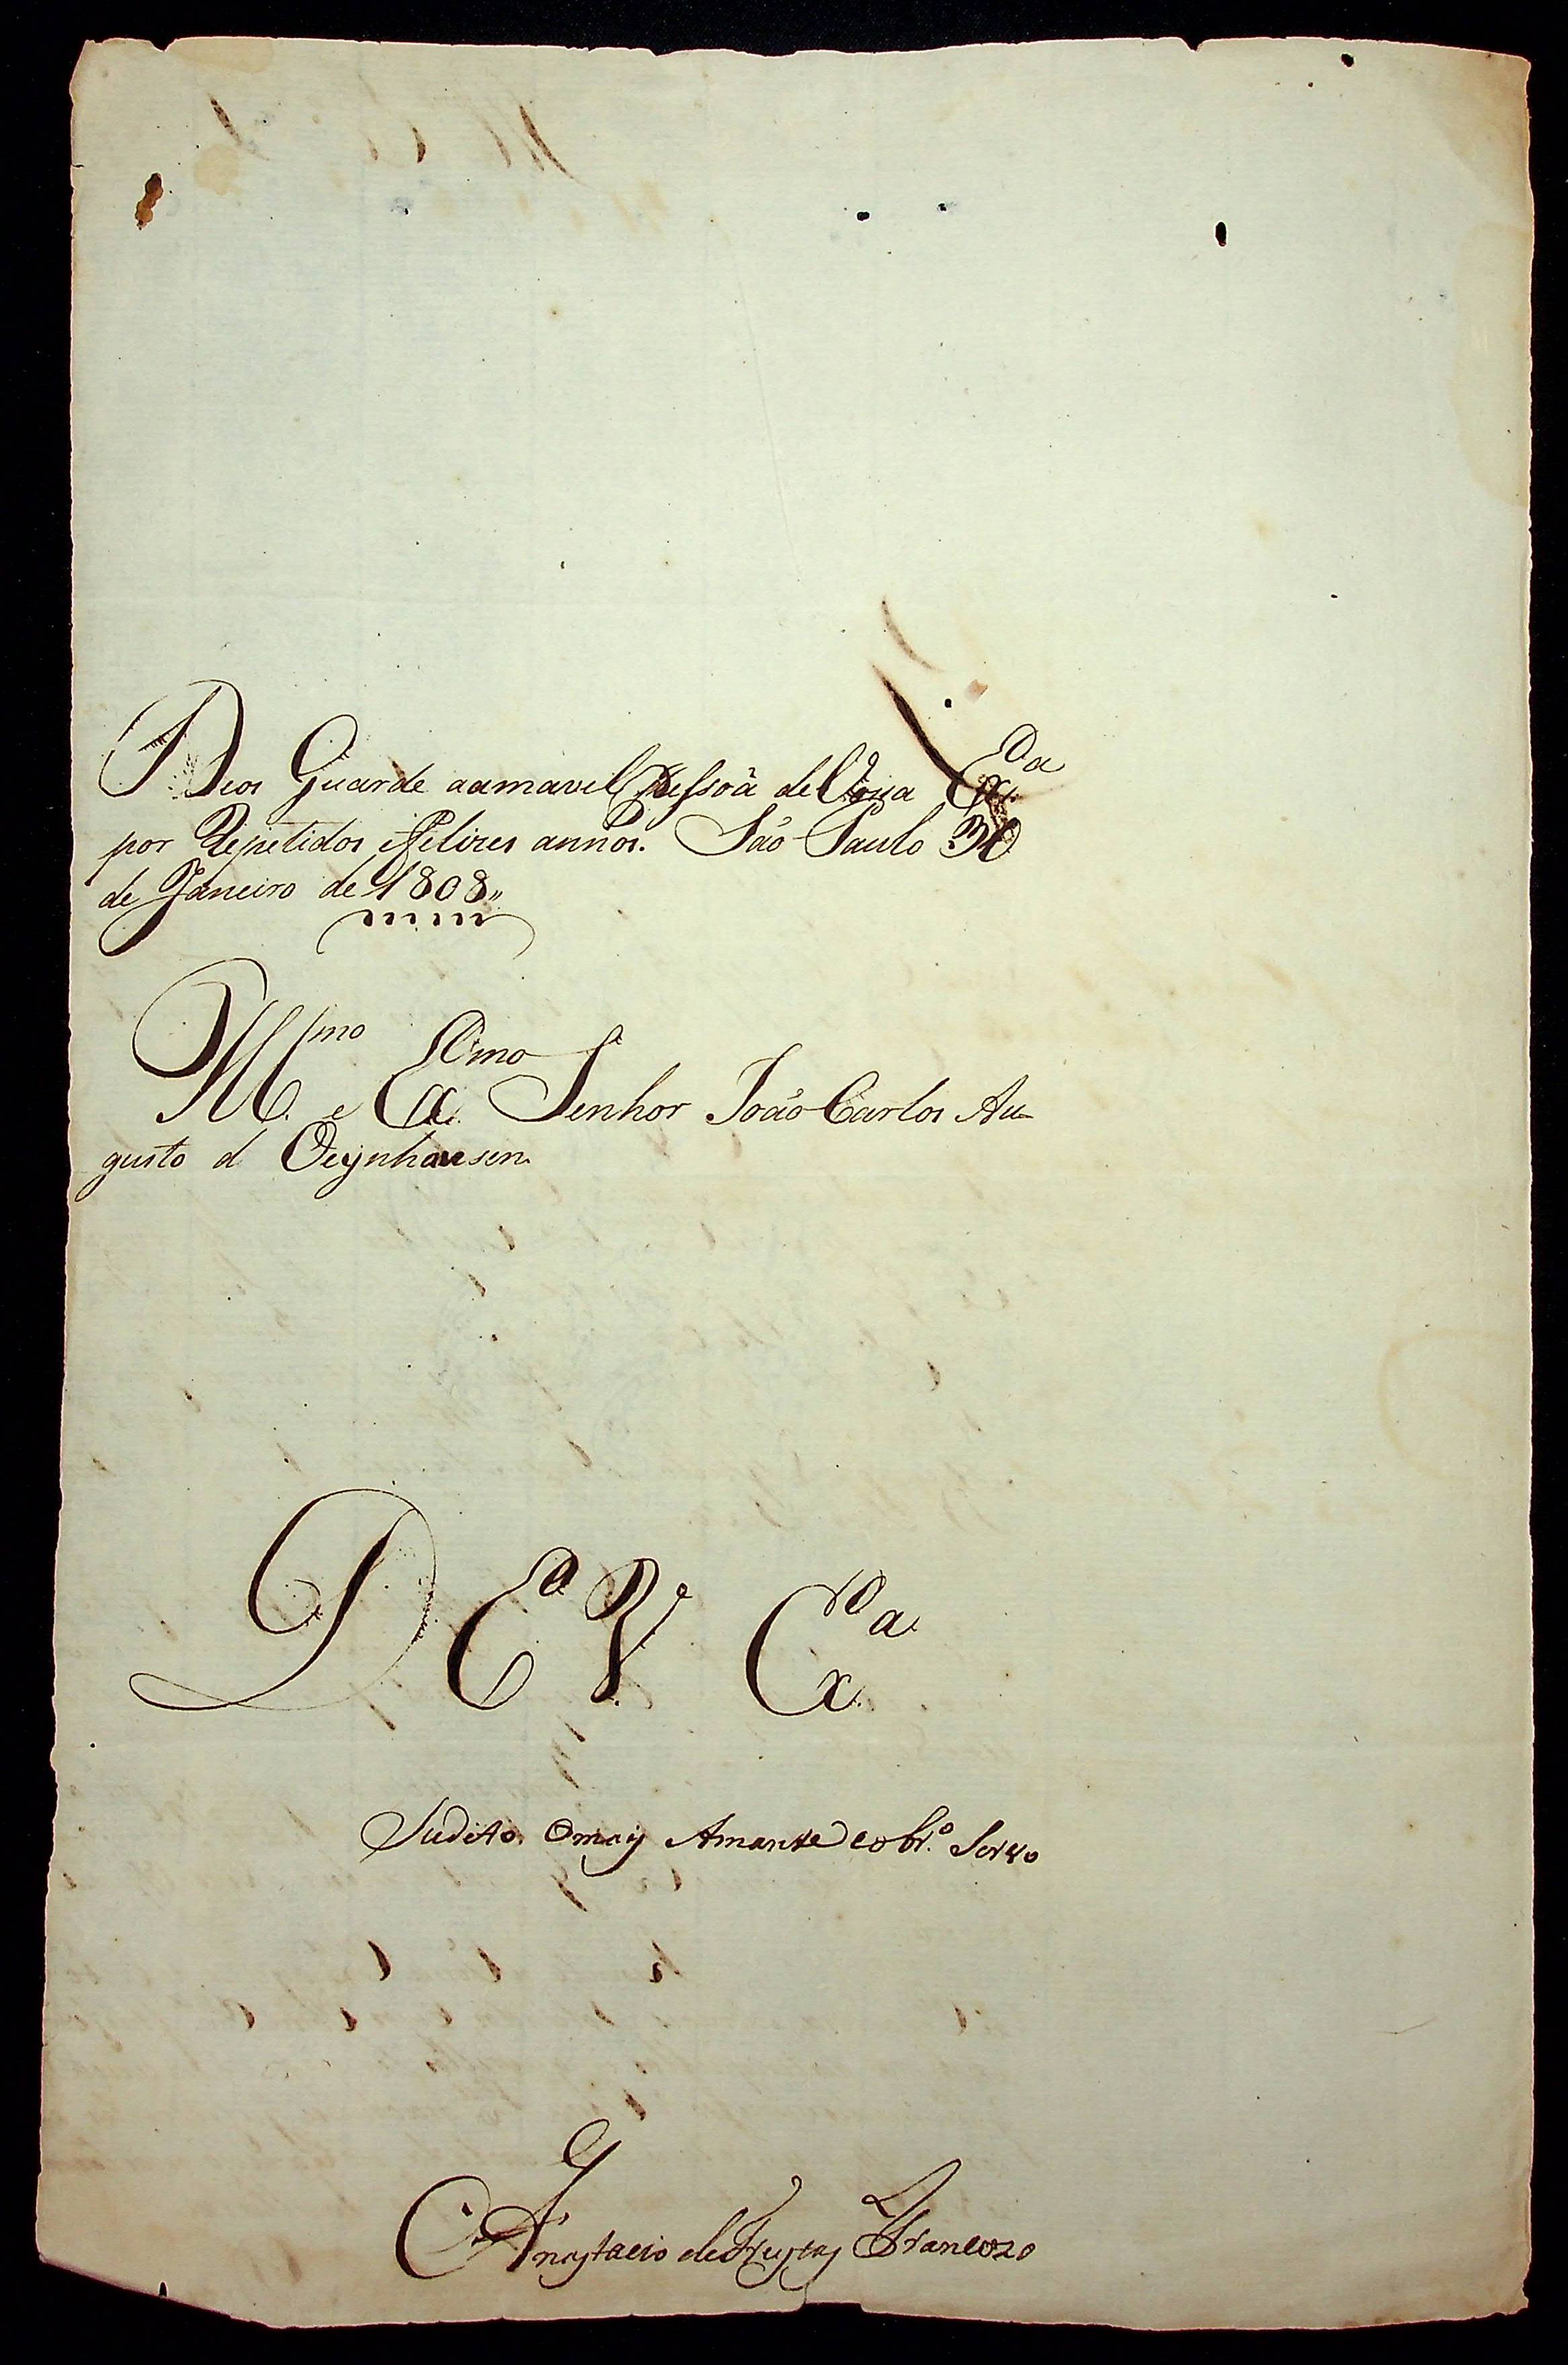 Deos Guarde aamavel Pessoâ de Vossa Exa.
por Repetidos e felizes annos. São Paulo 30
de Janeiro de 1808„
Illmo. e Exmo. Senhor João Carlos Au-
gusto d Oeynhausen.
De V. Exa.
Sudito. Omaiz Amante eobr.º Servo
Anastacio de Freytas Trancozo